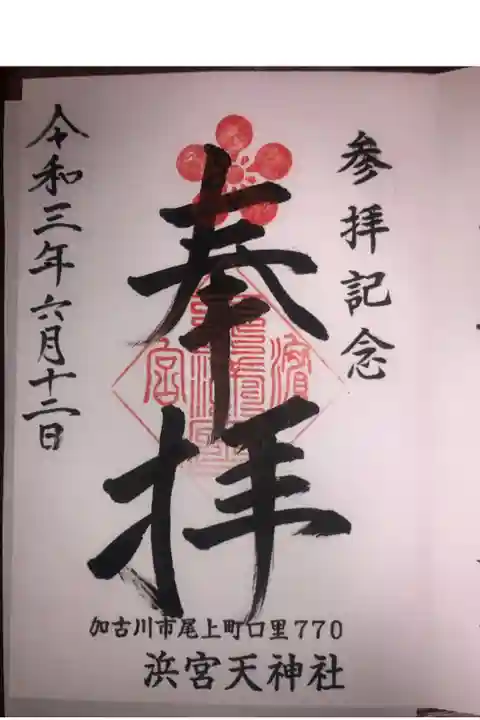 参拝記念
奉拝
濱宮
令和三年六月十二日
加古川市尾上町口里770
浜宮天神社